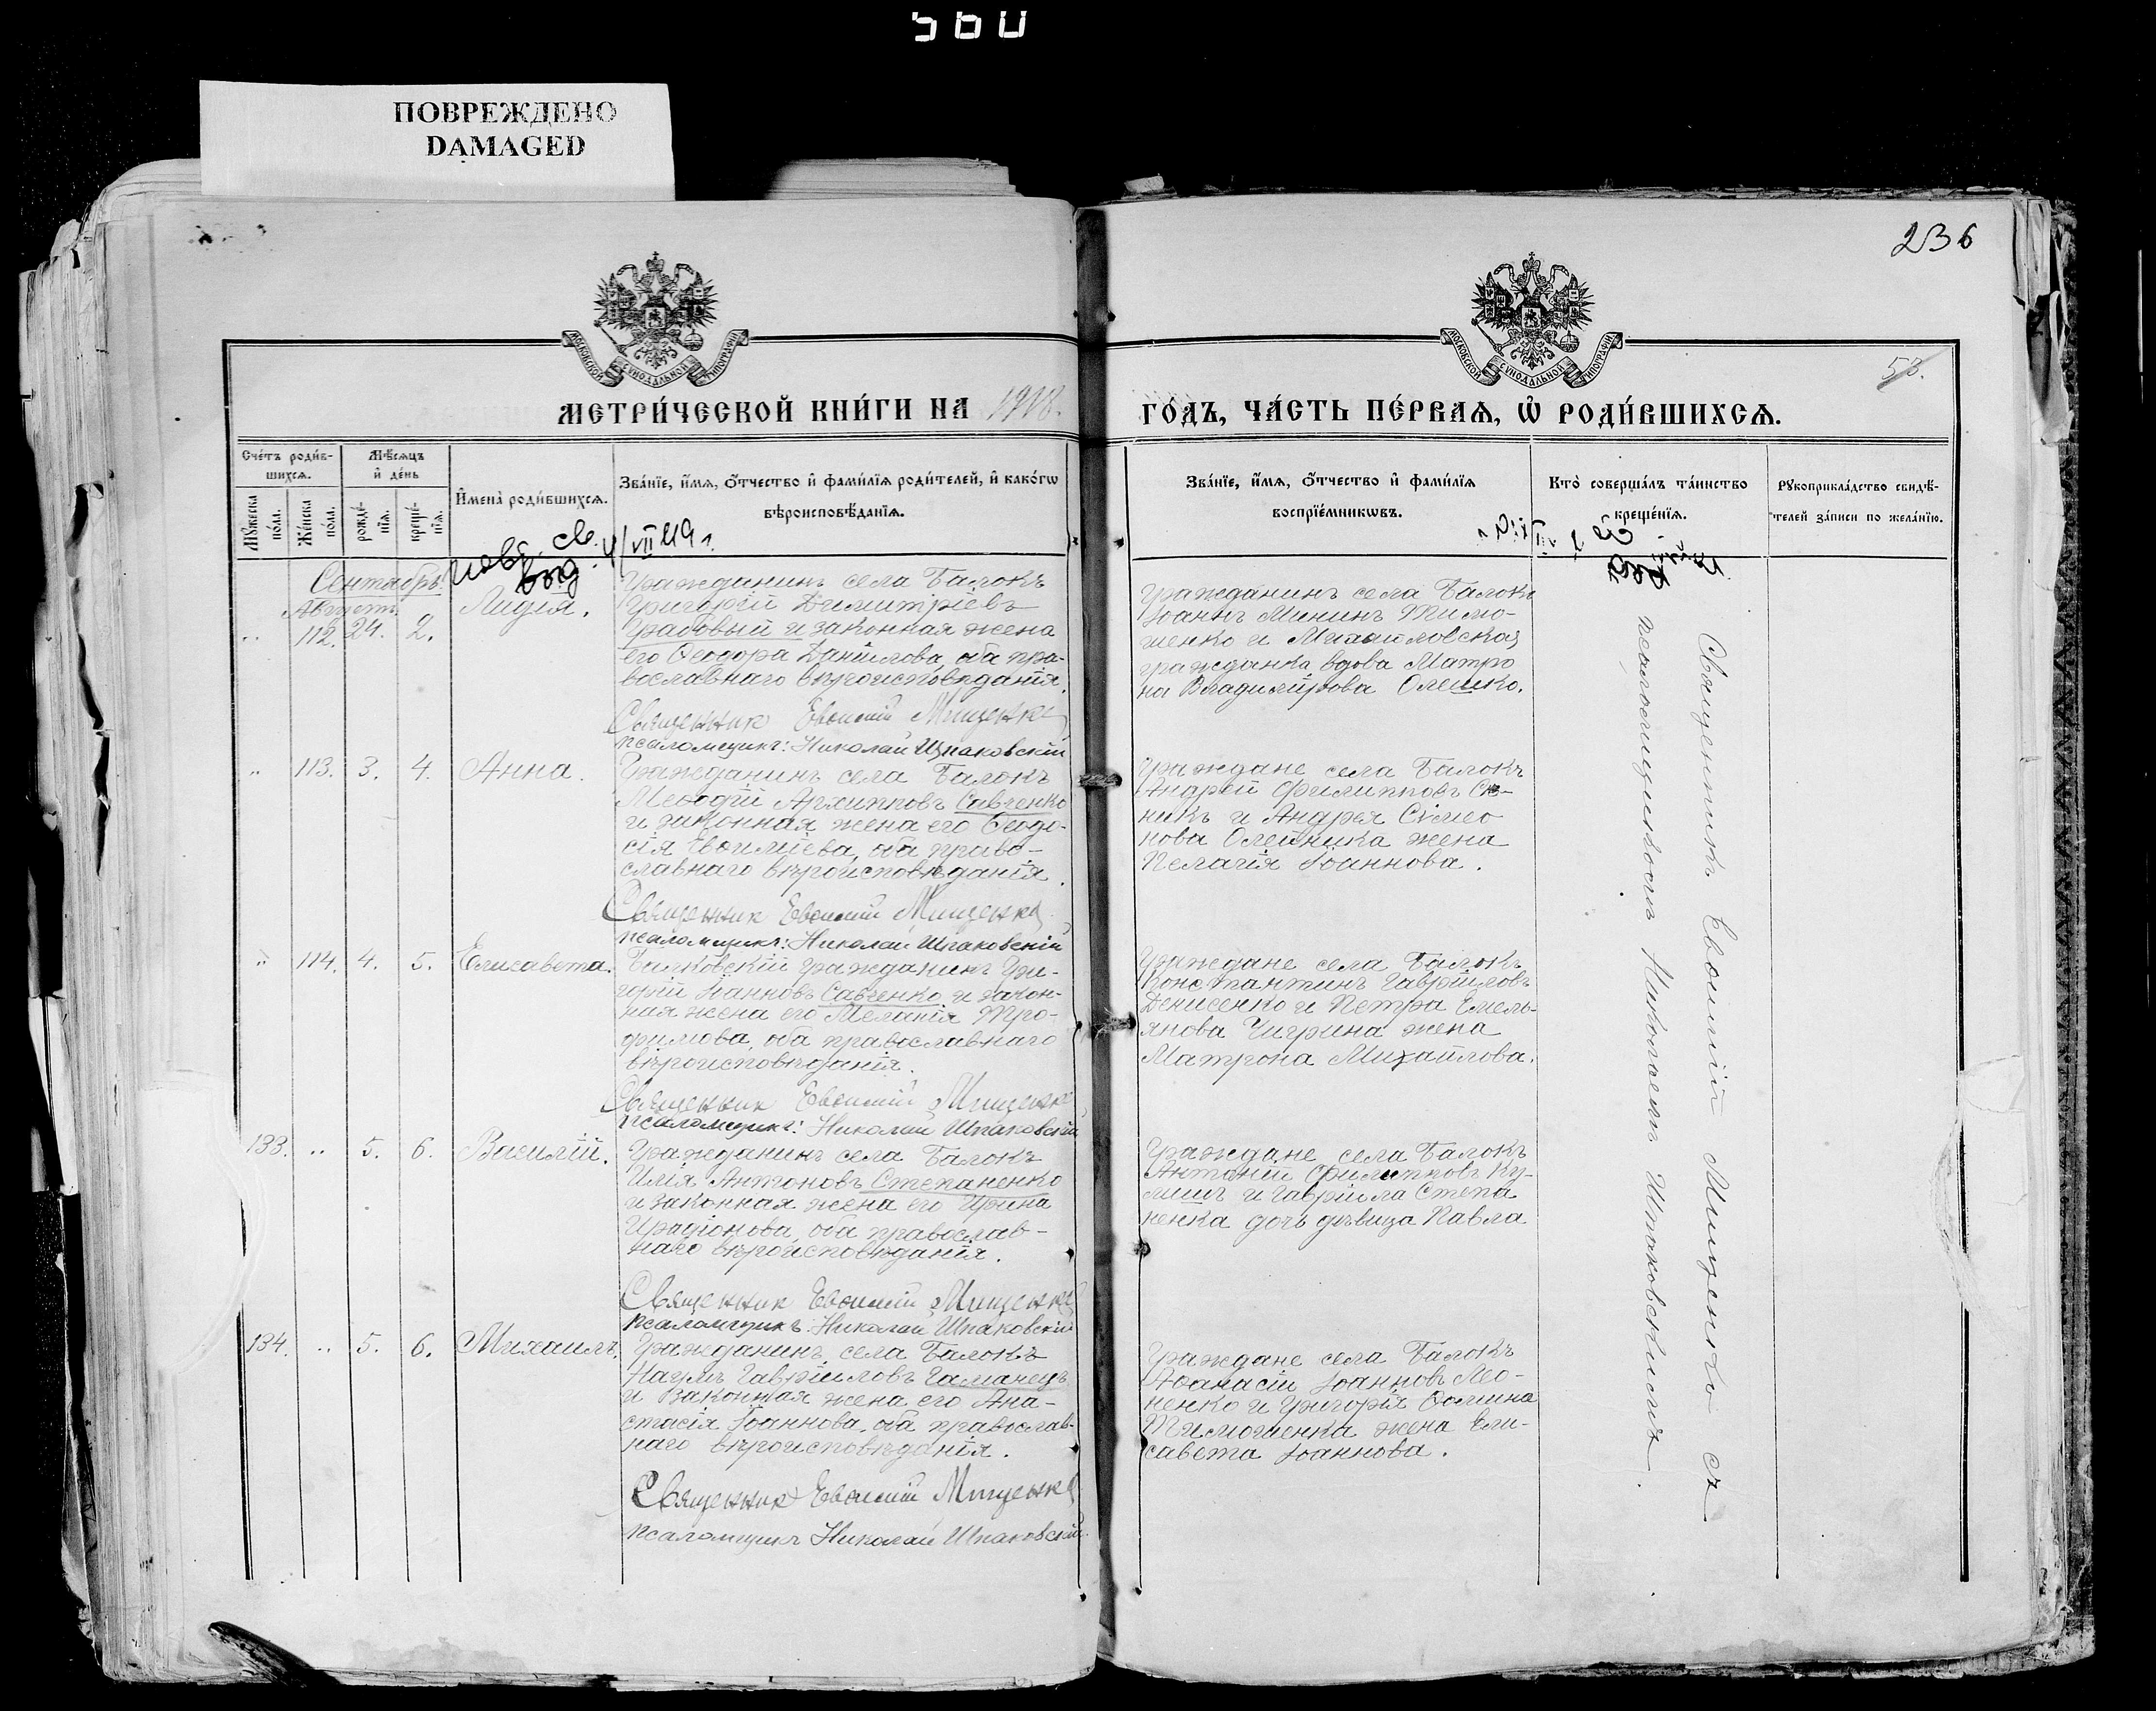 560
ПОВРЕЖДЕНО
DAMAGED
236
МОСКОВСКОЙ СУНОДАЛЬНОЙ ТИПОГРАФІИ
МОСКОВСКОЙ СУНОДАЛЬНОЙ ТИПОГРАФІИ
53.
МЕТРИ́ЧЕСКОЙ КНИ́ГИ НА 1918.
ГО́ДЪ, ЧА́СТЬ ПЕ́РВАѦ, Ѡ҆ РОДИ́ВШИХСѦ.
Сче́тъ роди́в-
шихсѧ.
Мꙋ́жеска по́ла.
Же́нска по́ла.
Мѣ́сѧцъ
и҆ де́нь
рожде́-
нїѧ.
креще́-
нїѧ.
И҆мена̀ роди́вшихсѧ.
Зва́нїе, и҆́мѧ, ѻ҆́тчество и҆ фами́лїѧ роди́телей, и҆ како́гѡ
вѣроисповѣ́данїѧ.
Зва́нїе, и҆́мѧ, ѻ҆́тчество и҆ фами́лїѧ
воспрїе́мникѡвъ.
Кто̀ соверша́лъ та́инство
креще́нїѧ.
Рꙋкоприкла́дство свидѣ́-
телей за́писи по жела́нїю.
Сентябрь
Августъ
112. 24. 2.
Лидія.
Гражданинъ села Балокъ
Григорій Димитріевъ
Грабовый и законная жена
его Ѳеодора Даніилова, оба пра-
вославнаго вѣроисповѣданія.
Священник Евѳимій Мищенко
псаломщикъ: Николай Шпаковскій
Гражданинъ села Балокъ
Іоаннъ Мининъ Тимо-
шенко и
гражданка вдова Матро
на Владимірова Олешко.
" 113. 3. 4. Анна.
Гражданинъ села Балокъ
Меѳодій Архипповъ Савченко
и законная жена его Ѳеодо-
сія Евѳиміева, оба право-
славнаго вѣроисповѣданія.
Священник Евѳимій Мищенко
псаломщикъ: Николай Шпаковскій
Граждане села Балокъ
Андрей Филипповъ
и Андрея Сімео
нова Олейника жена
Пелагія Іоаннова.
" 114. 4. 5. Елисавета.
Балковскій гражданинъ Гри-
горій Іоанновъ Савченко и закон-
ная жена его Меланія Тро-
фимова, оба православнаго
вѣроисповѣданія.
Священник Евѳимій Мищенко
псаломщикъ: Николай Шпаковскій
Граждане села Балокъ
Константинъ Гавріиловъ
Денисенко и Петра Емель-
янова Чигрина жена
Матрона Михаилова.
133. " 5. 6. Василій.
Гражданинъ села Балокъ
Илія Антоновъ Степаненко
и законная жена его Ирина
Иродіонова, оба православ-
наго вѣроисповѣданія.
Священник Евѳимій Мищенко
псаломщикъ: Николай Шпаковскій
Граждане села Балокъ
Антоній Филипповъ Ку-
лишъ и Гавріила Степа
ненка дочь дѣвица Павла
134. " 5. 6. Михаилъ.
Гражданинъ села Балокъ
Наумъ Гавріиловъ Гаманецъ
и законная жена его Ана-
стасія Іоаннова, оба православ-
наго вѣроисповѣданія.
Священник Евѳимій Мищенко
псаломщикъ Николай Шпаковскій
Граждане села Балокъ
Аѳанасій Іоанновъ Лео-
ненко и Григорія Ѳомина
Тимошенка жена Ели-
савета Іоаннова.
Священникъ Евѳимій Мищенко съ
псаломщикомъ Николаемъ Шпаковскимъ.